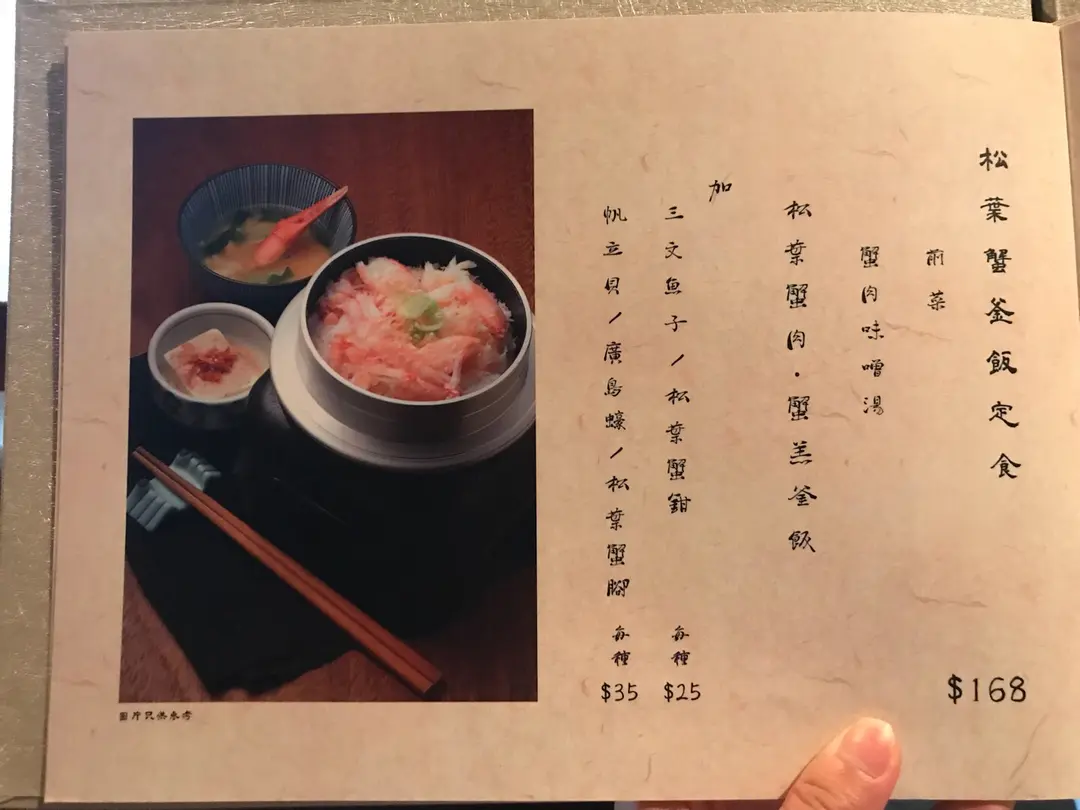 松葉蟹釜飯定食
$168
前菜
蟹肉味噌湯
松葉蟹肉．蟹羔釜飯
加
三文魚子／松葉蟹鉗 每種 $25
帆立貝／廣島蠔／松葉蟹腳 每種 $35
圖片只供參考